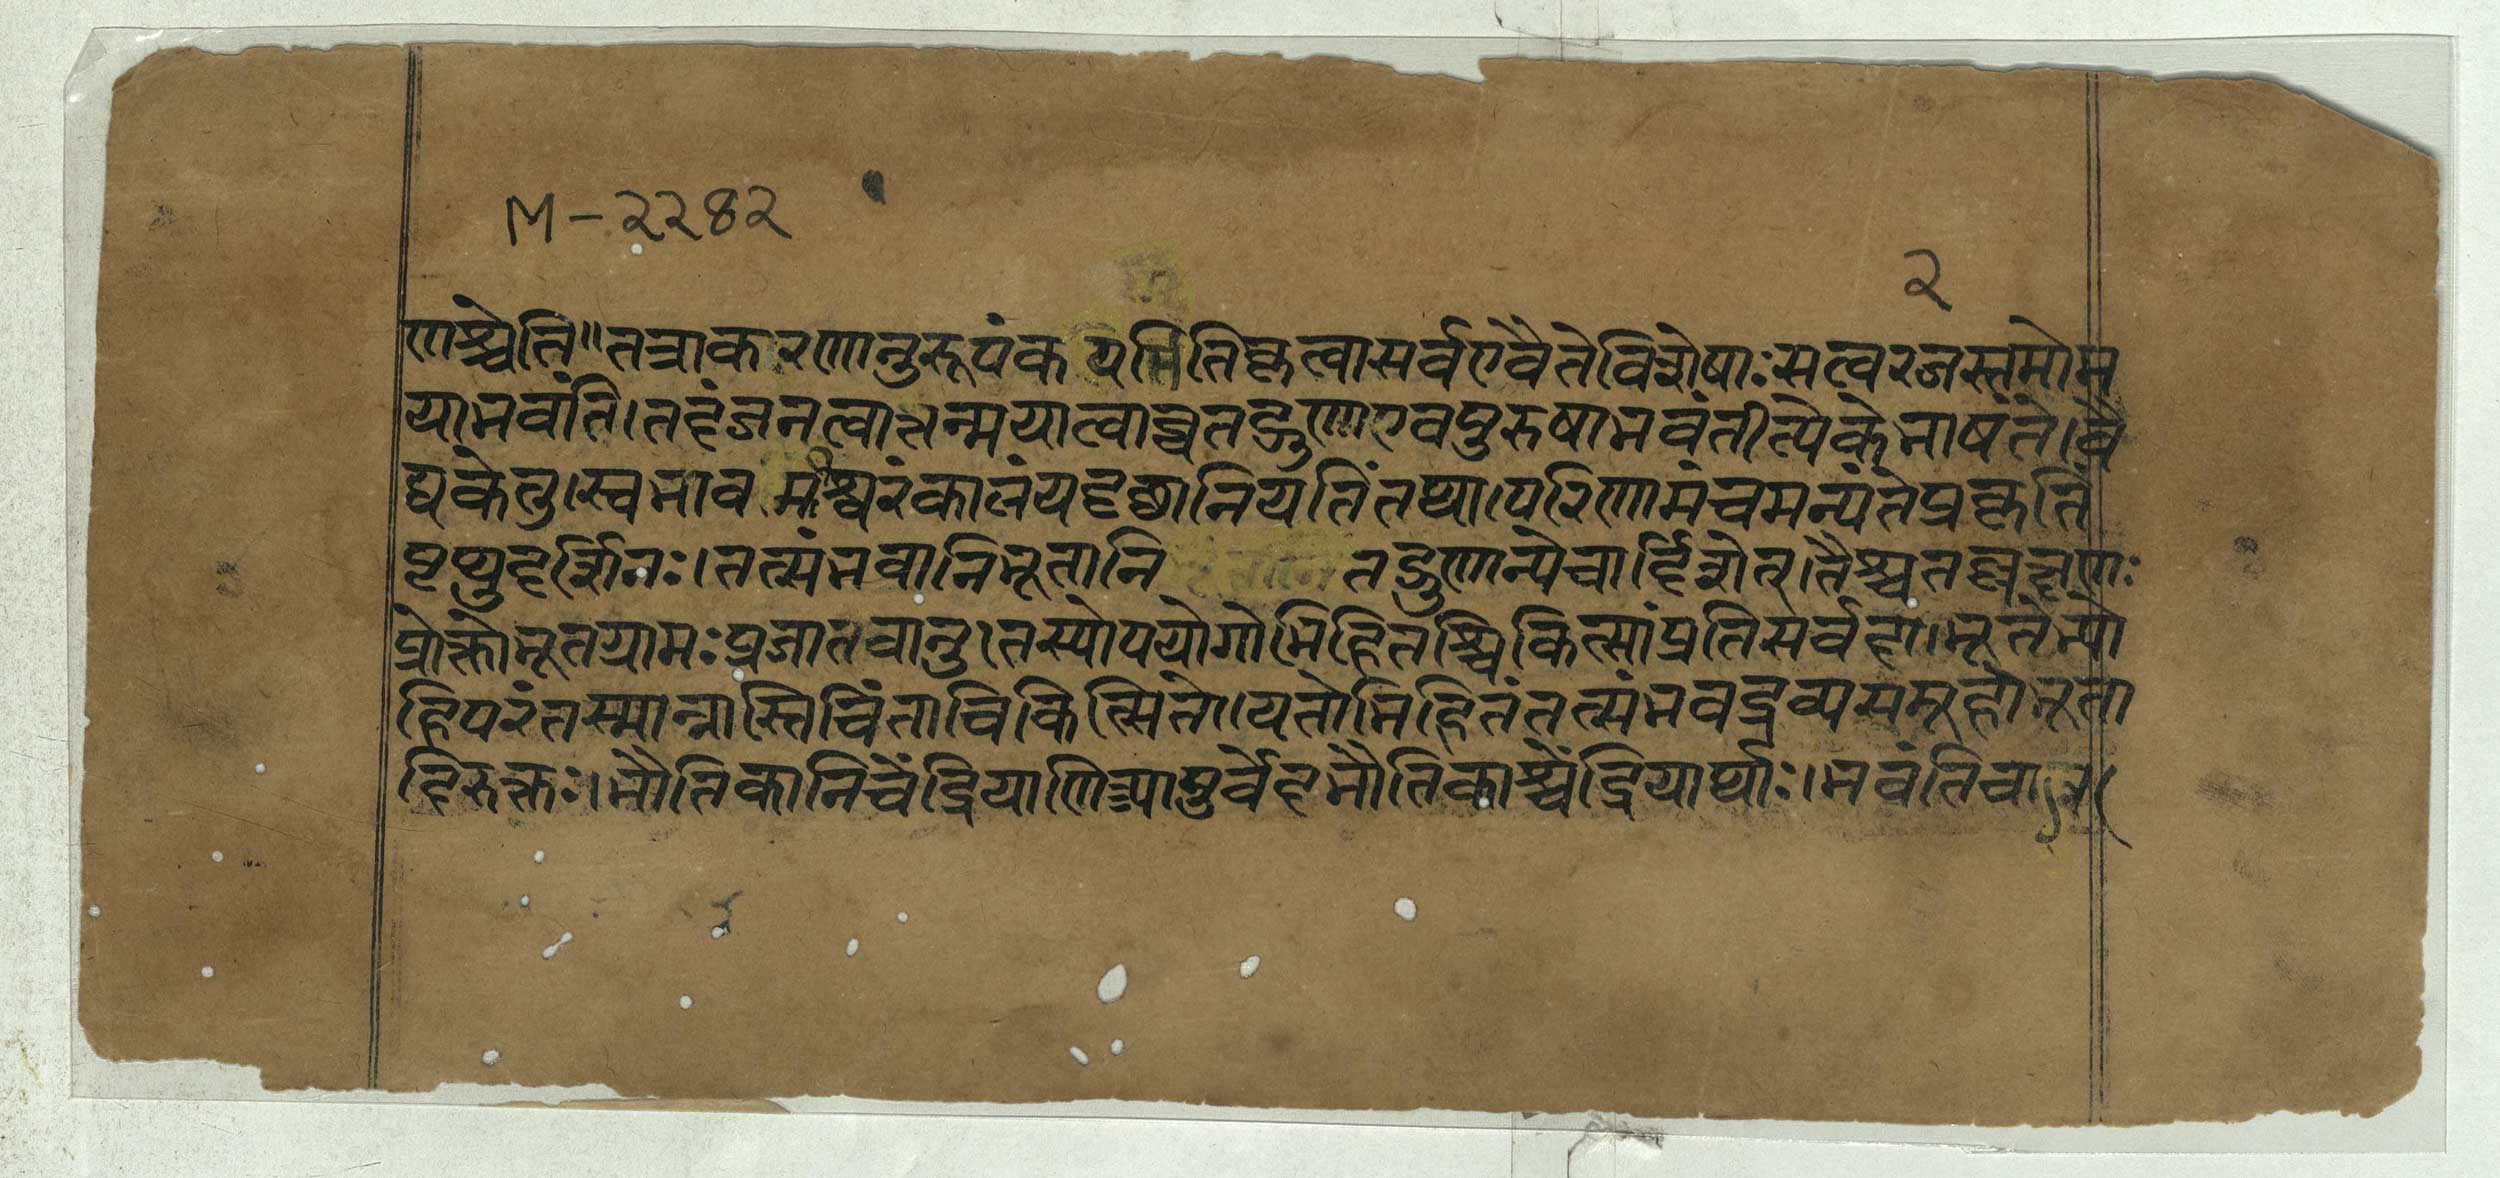 M-२२४२
२
णश्चेति॥तत्राकरणनुरूपंकार्यमितिकृत्वासर्वएवैतेविशेषाःसत्वरजस्तमोम
याभवंति।तदंजनत्वात्तन्मयात्वाच्चतद्गुणाएवपुरुषाभवंतीत्येकेभाषंते।वै
द्यकेतु।स्वभावमीश्वरंकालंयदृछानियतिंतथा।परिणामंचमन्यंतेप्रकृतिं
पृथुदर्शिनः।तत्संभवानिभूतानि तद्गुणान्येवादिशेत्।तैश्चतल्लक्षणः
प्रोक्तोभूतग्रामःप्रजातवानु।तस्योपयोगोभिहितश्चिकित्सांप्रतिसर्वदा।भूतेभ्यो
हिपरंतस्मान्नास्तिचिंताचिकित्सिते।यतोभिहितंतत्संभवद्रव्यसमूहोभूता
दिरुक्तः।भौतिकानिचेंद्रियाण्यायुर्वेदभौतिकाश्चेंद्रियार्थाः।भवंतिचात्र